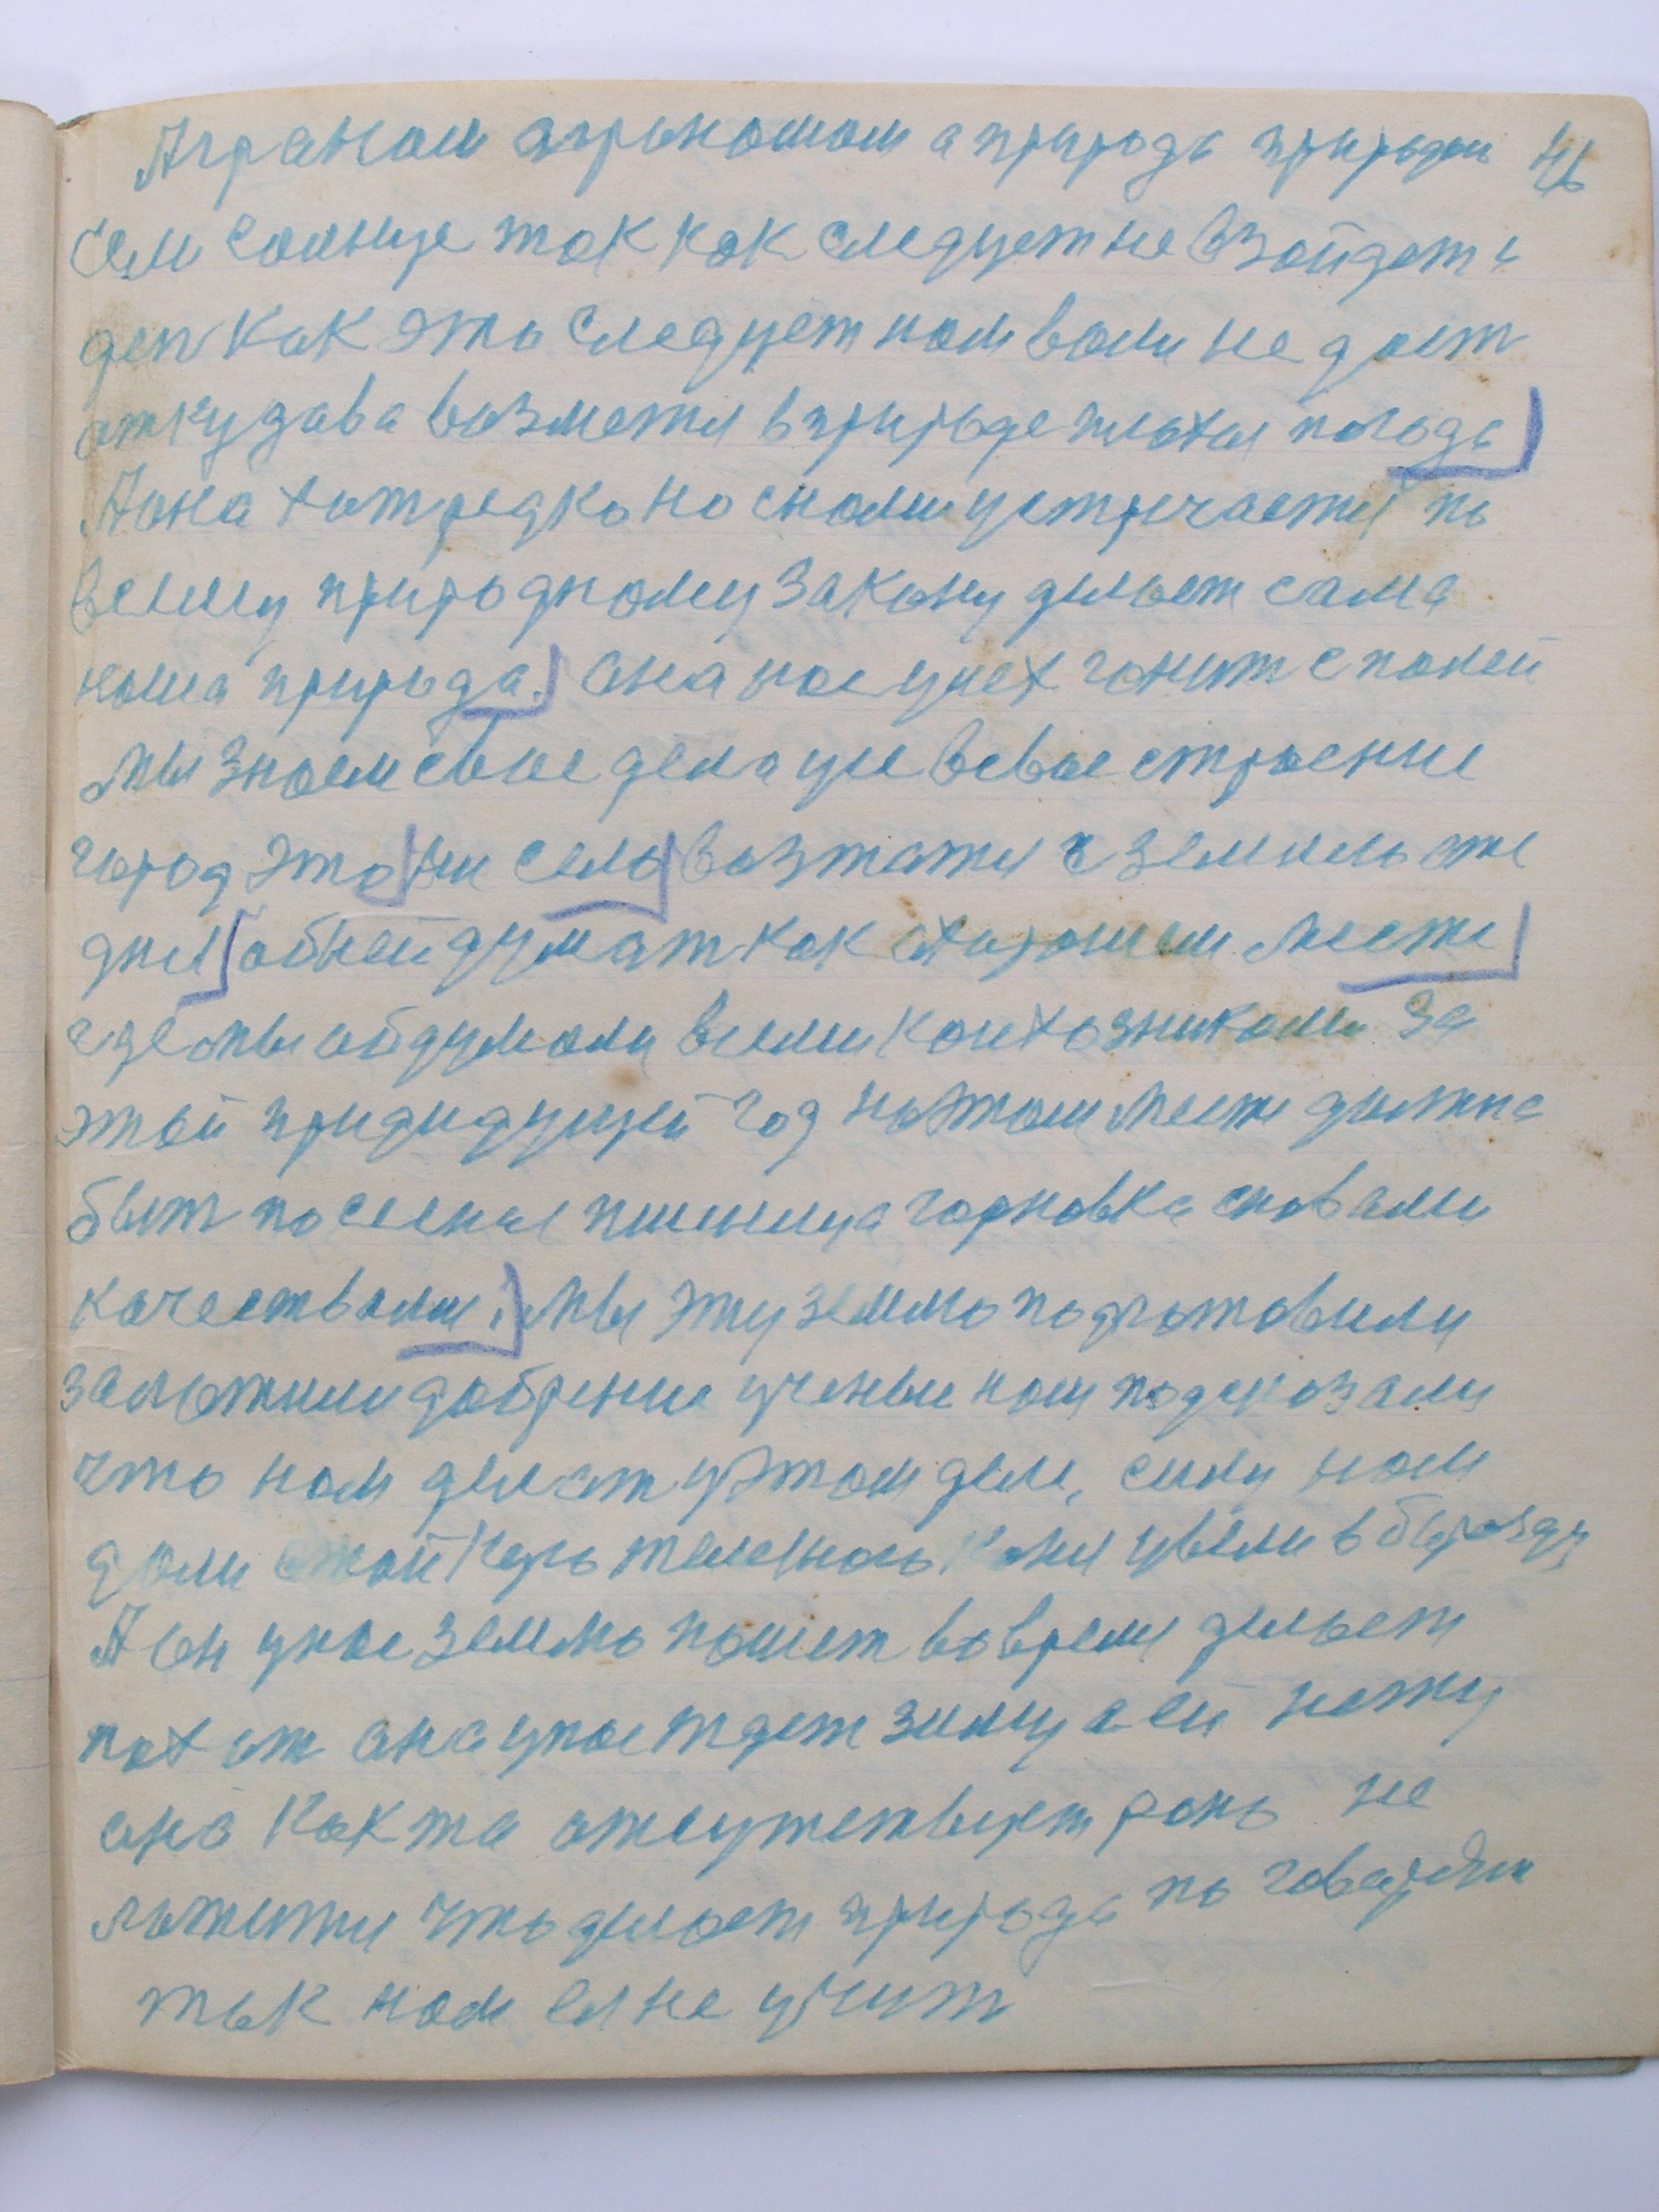 Аграном агрономом а природа природаи 46
Если солнце так как следует не взойдет и
ден как это следует нам вами не даст
аткудава возметя в природе плахая погода
А она хот редко но снами устречается по
всему природному закону делает сама
наша природа. она нас усех гонит с полей
Мы знаем свае дела усе всвае строение
город это не село возтатя с землею оте
дня обней думат как охорошем месте
где мы абдумали всеми колхозниками за
этой придидущей год на этом месте должна
быт посееная пшеница горновка сновами
качествами. Мы эту землю подготовили
заложили добрение ученые нам подсказали
что нам делат уэтом деле, силу нам
дали стольког коня увели в борозду
А он унас землю пашет вовремя делает
пахот она унас ждет зиму а ей нету
она как та атсутствует рань не
ложится что делает природа по говорят
так нам ея не учит